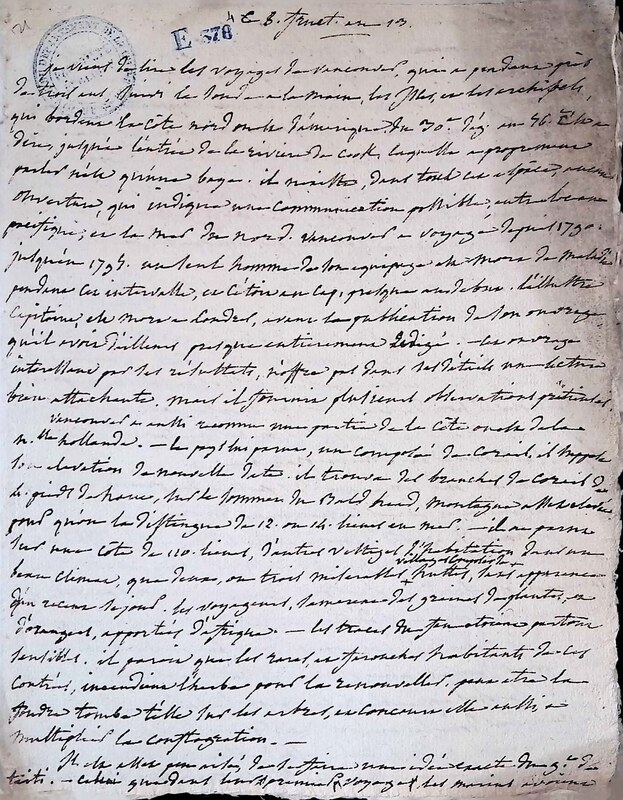 4 & 8. fruct. an 13.
E 578
je viens de lire les voyages de vancouver, qui a pendant près
de trois ans suivi la sonde a la main, les isles, et les archipels,
qui bordent la côte nord ouest d'amerique du 30e. dég. au 56. C'est a
dire, jusqu'a l'entrée de la riviere de cook, laquelle a proprement
parler n'est qu'une baye. il n'existe, dans tout cet espace, aucune
ouverture, qui indique une communication possible, entre l'ocean
pacifique, et la mer du nord. vancouver a voyagé depuis 1790.
jusqu'en 1795. un seul homme de son equipage est mort de maladie
pendant cet intervalle, et c'étoit au cap, presque au debut. l'illustre
Capitaine, est mort a Londres, avant la publication de son ouvrage
qu'il avoit d'ailleurs presque entierement redigé. - cet ouvrage
interessant par ses résultats, n'offre pas dans ses détails une lecture
bien attachante. mais il fournit plusieurs observations précieuses
vancouver a aussi reconnu une partie de la côte ouest de la
n.lle hollande. - le pays lui parut, un composé de corail. il suppose
son elevation de nouvelle date. il trouva des branches de corail de
4. pieds de haut, sur le sommet du Bald head, montagne assez elevée
pour qu'on la distingue de 12. ou 14. lieues en mer. - il ne parut
sur une côte de 110. lieues, d'autres vestiges d'habitation dans un
beau climat, que deux, ou trois miserables villages composés de huttes, sans apparence
d'un recent sejour. les voyageurs, semerent des graines de plantes, et
d'oranges, apportés d'afrique. - les traces du feu etoient partout
sensibles. il paroit que les rares, et farouches habitants de ces
contrées, incendient l'herbe pour la renouveller. peut etre la
foudre tombe t'elle sur les arbres, et concourt elle aussi a
multiplier la conflagration. -
Il est assez peu aisé de se faire une idée exacte du g.t de
taiti. - celui que dans leurs premiers voyages les marins avoient